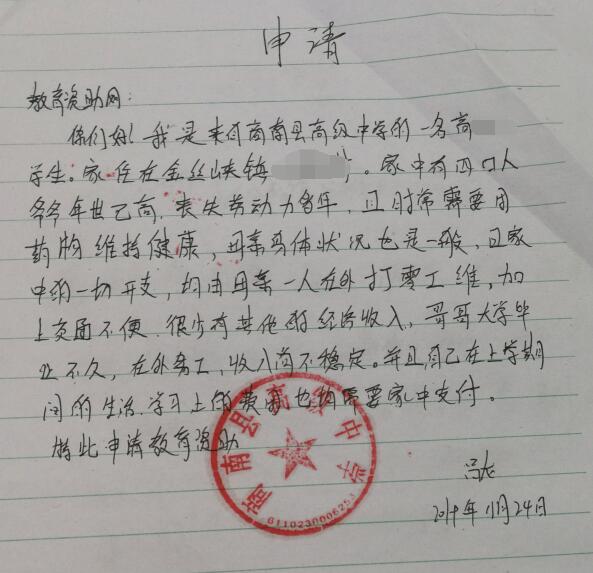 申请
教育资助网:
你们好!我是来自商南县高级中学的一名高
学生。家住在金丝峡镇。家中有四口人
爷爷年世已高,丧失劳动力多年,且时常需要用
药物维持健康,母亲身体状况也是一般,且家
中的一切开支,均由母亲一人在外打零工维,加
上交通不便.很少有其他的经济收入,哥哥大学毕
业不久,在外务工,收入尚不稳定。并且自己在上学期
间的生活.学习上的费用也均需要家中支付。
特此申请教育资助
商南县高级中学
6110230006253
年11月24日